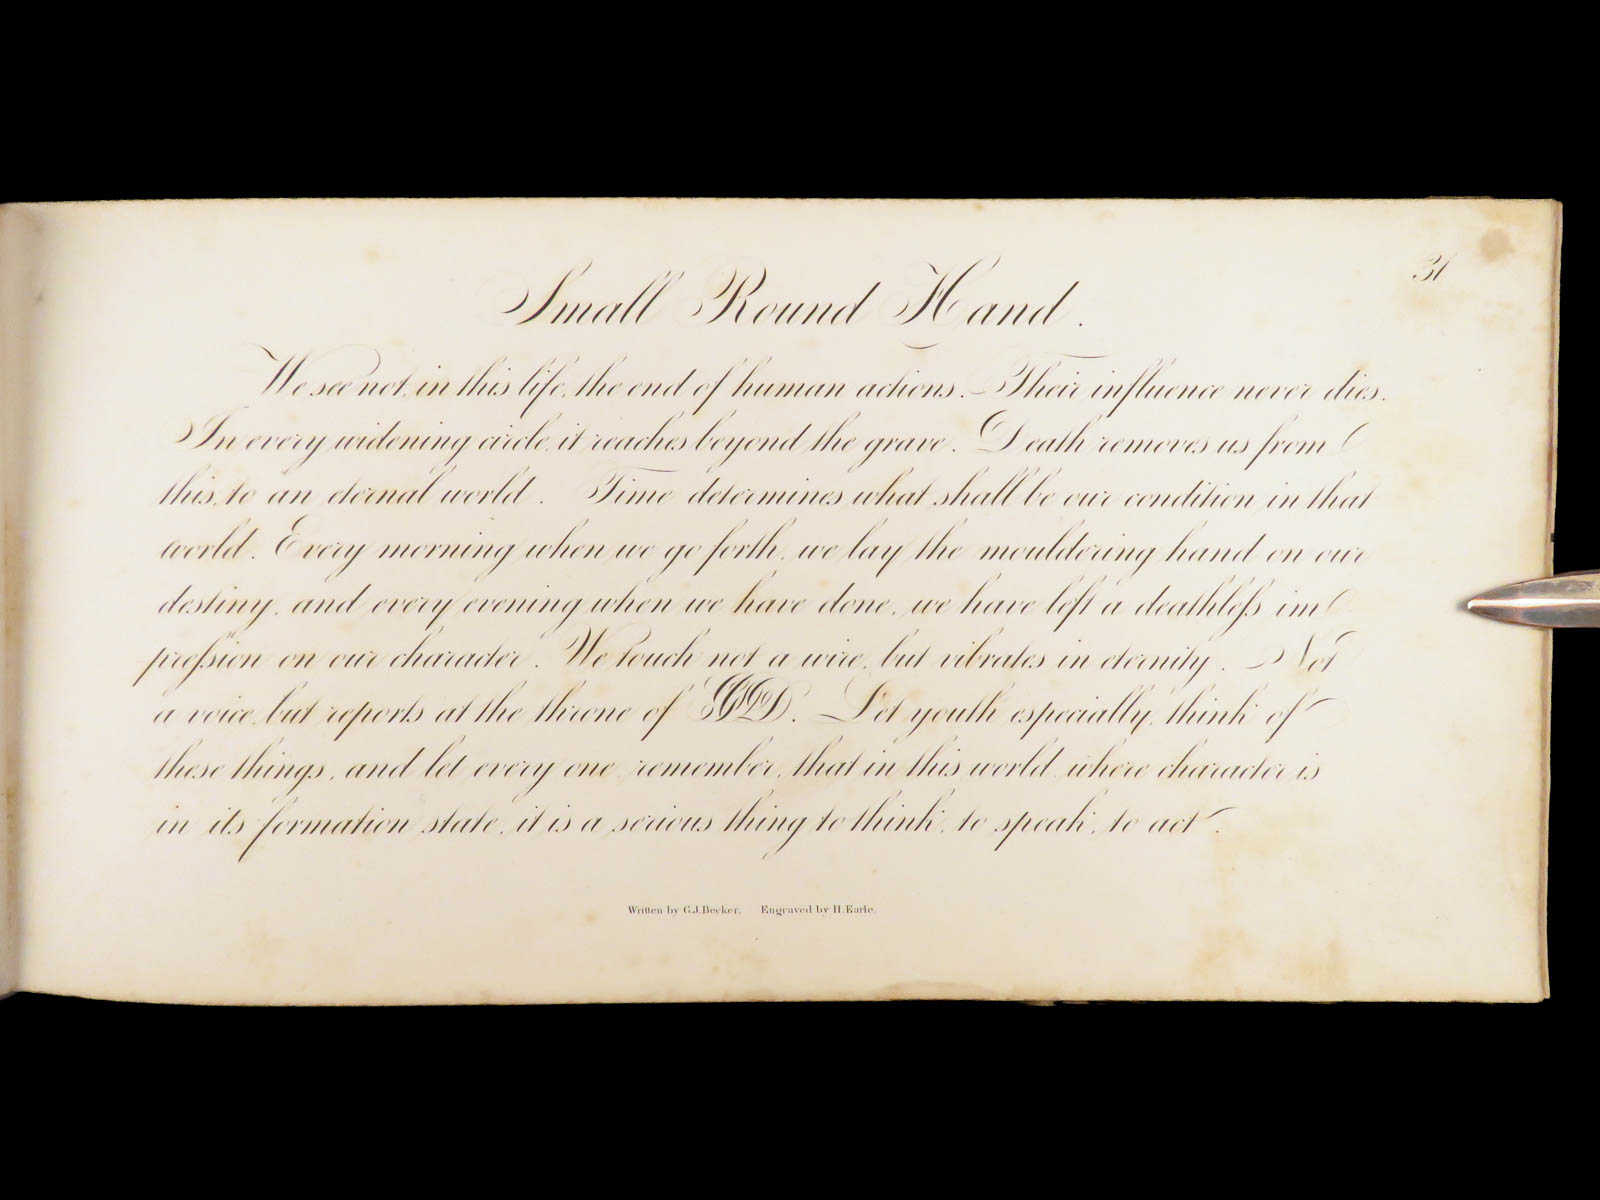 31
Small Round Hand.
We see not, in this life, the end of human actions. Their influence never dies.
In every widening circle, it reaches beyond the grave. Death removes us from
this, to an eternal world. Time determines what shall be our condition in that
world. Every morning when we go forth, we lay the mouldering hand on our
destiny, and every evening when we have done, we have left a deathleſs im
preſsion on our character. We touch not a wire, but vibrates in eternity. Not
a voice, but reports at the throne of GOD. Let youth especially, think of
these things, and let every one remember, that in this world, where character is
in its formation state, it is a serious thing to think, to speak, to act.
Written by G.J.Becker. Engraved by H.Earle.